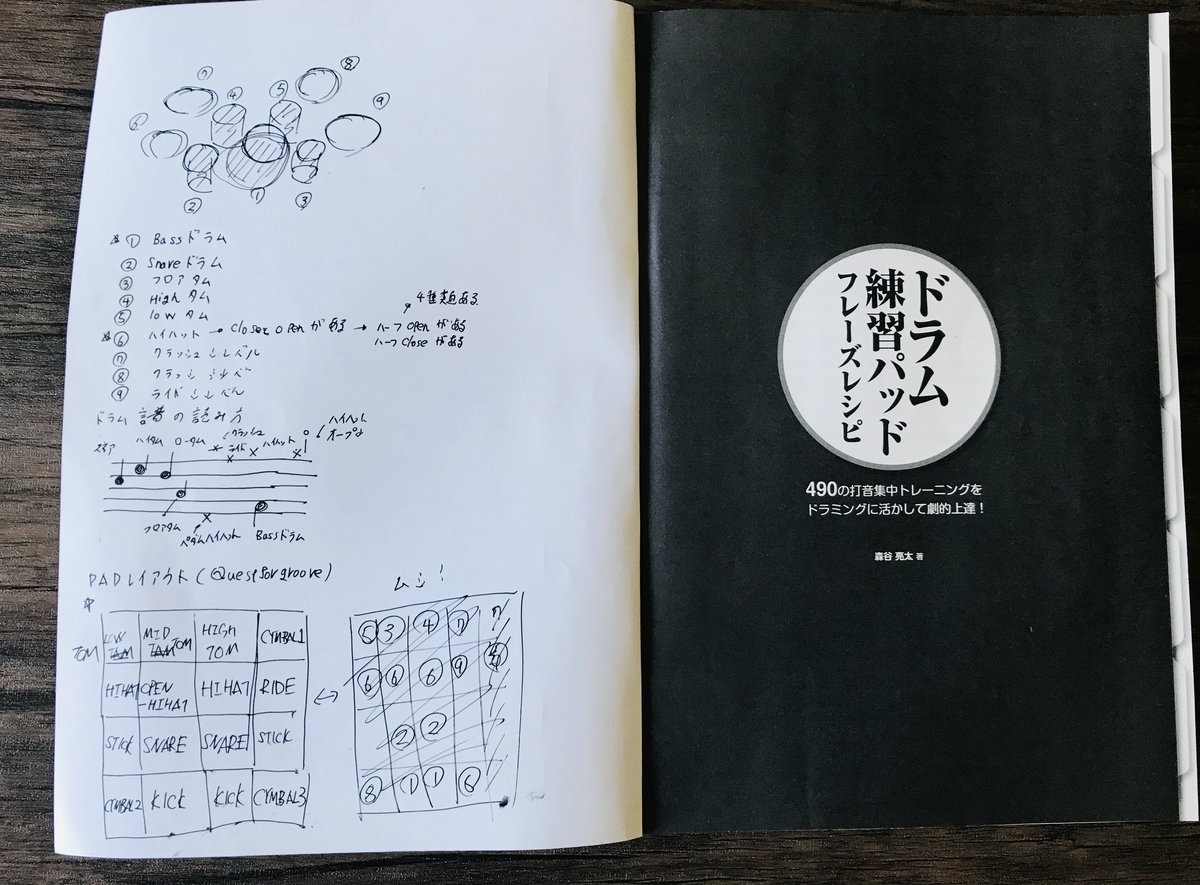 ⑦
⑧
④
⑤
⑨
⑥
②
①
③
① Bassドラム
② Snareドラム
③ フロアタム
④ Highタム
⑤ lowタム
⑥ ハイハット → close open がある → ハーフ open がある
4種類ある
ハーフ close がある
⑦ クラッシュシンバル
⑧ クラッシュ
⑨ ライド
ドラム譜の読み方
ハイハット
オープン
クラッシュ
ハイタム ロータム ライド ハイハット
フロアタム
ペダルハイハット Bassドラム
PADレイアウト(Questforgroove)
ムシ!
TOM
LOW MID TOM HIGH TOM CYMBAL1
HIHAT OPEN-HIHAT HIHAT RIDE
STICK SNARE SNARE STICK
CYMBAL2 KICK KICK CYMBAL3
⑤ ③ ④ ⑦
⑥ ⑥ ⑥ ⑨
② ②
⑧ ① ① ⑧
ドラム
練習パッド
フレーズレシピ
490の打音集中トレーニングを
ドラミングに活かして劇的上達!
森谷 亮太 著